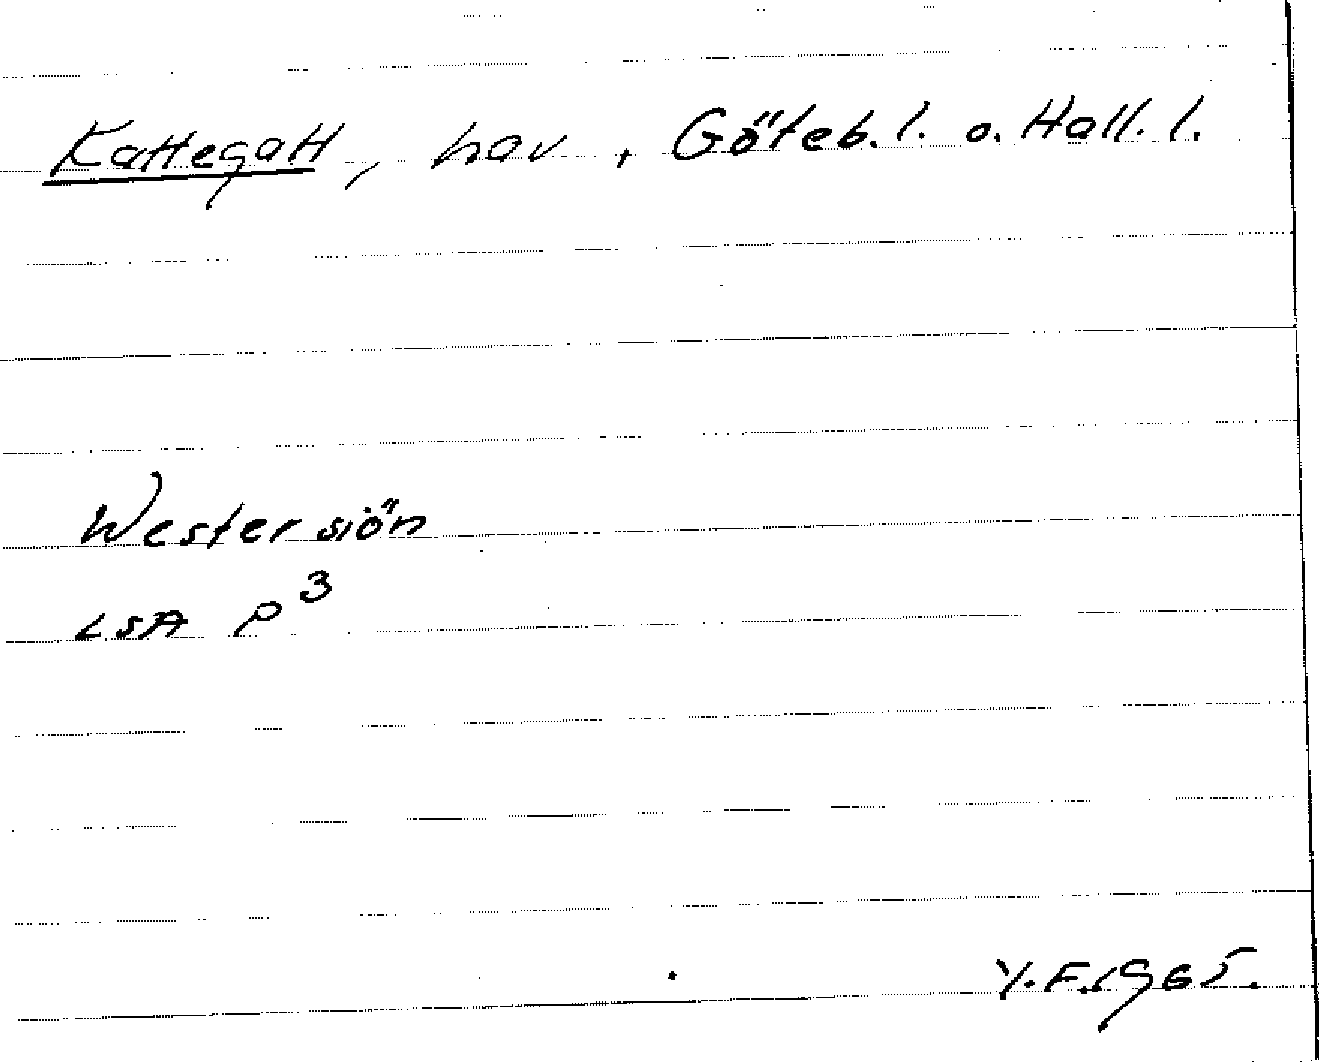 Kattegatt, hav, Göteb. l. o. Hall. l.
Westersiön
LSA P3
Y.F. 1965.